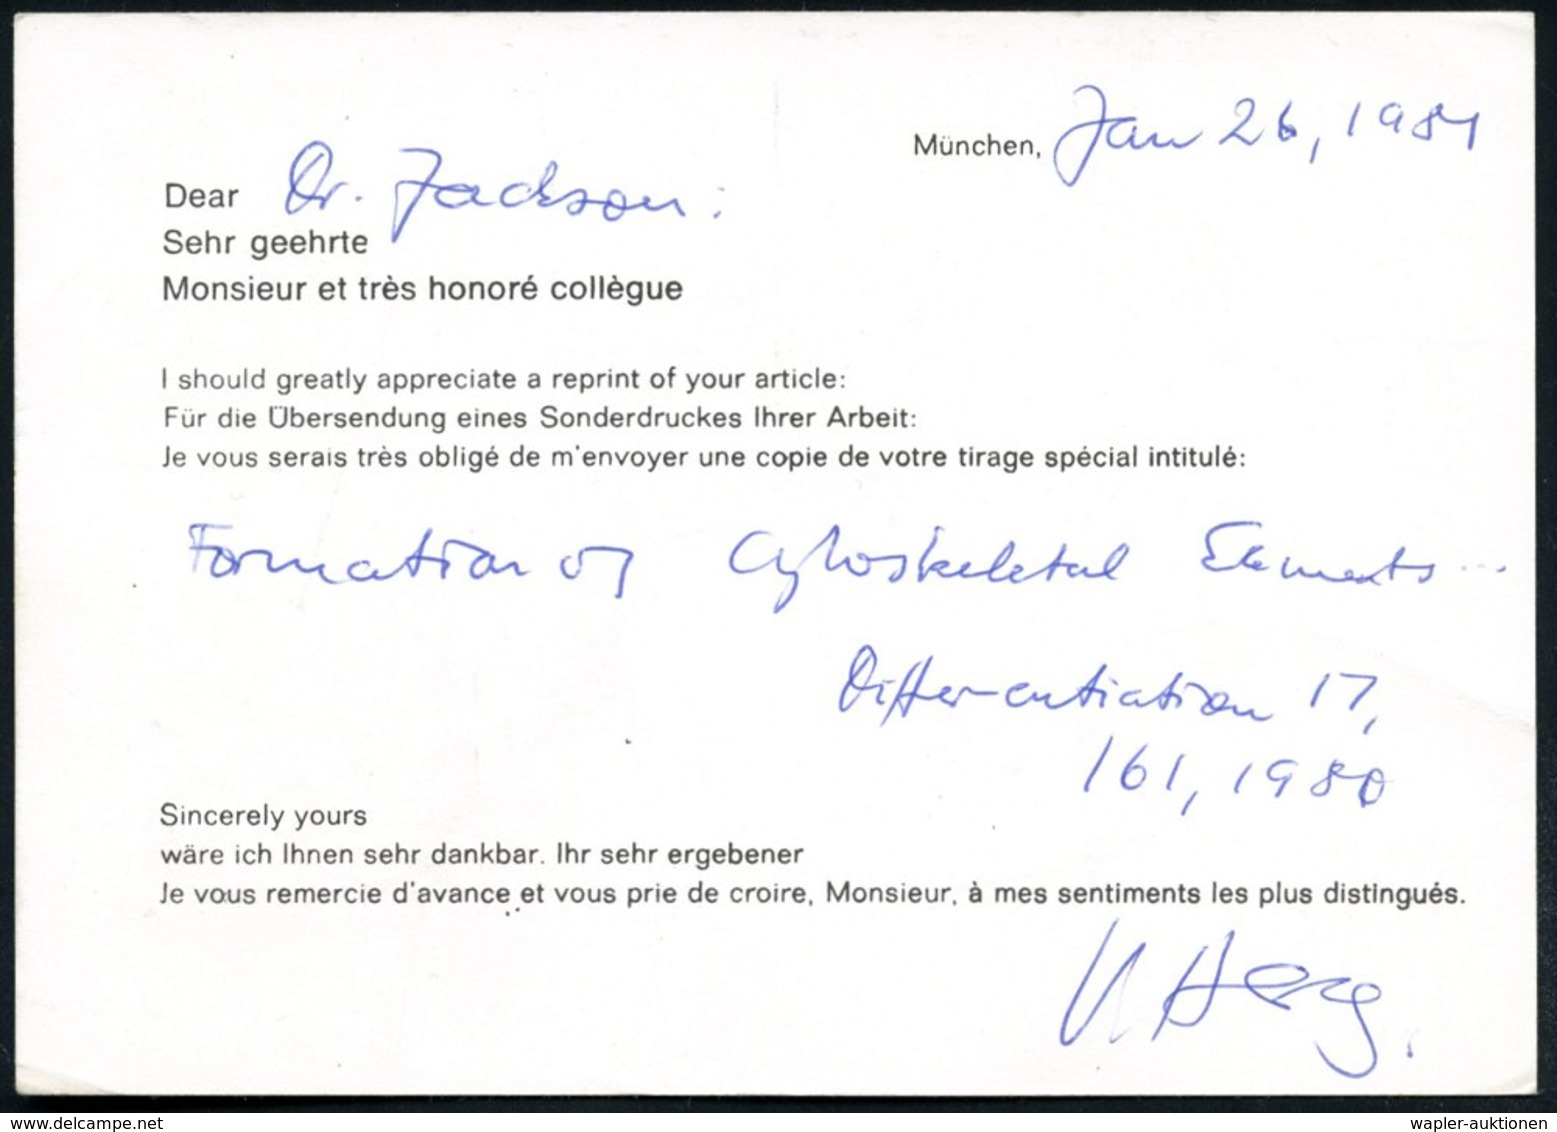 München, Jan 26, 1981
Dear Dr. Jackson:
Sehr geehrte
Monsieur et très honoré collègue
I should greatly appreciate a reprint of your article:
Für die Übersendung eines Sonderdruckes Ihrer Arbeit:
Je vous serais très obligé de m'envoyer une copie de votre tirage spécial intitulé:
Formation of Cytoskeletal Elements...
Differentiation 17,
161, 1980
Sincerely yours
wäre ich Ihnen sehr dankbar. Ihr sehr ergebener
Je vous remercie d'avance et vous prie de croire, Monsieur, à mes sentiments les plus distingués.
wapler-auktionen.com